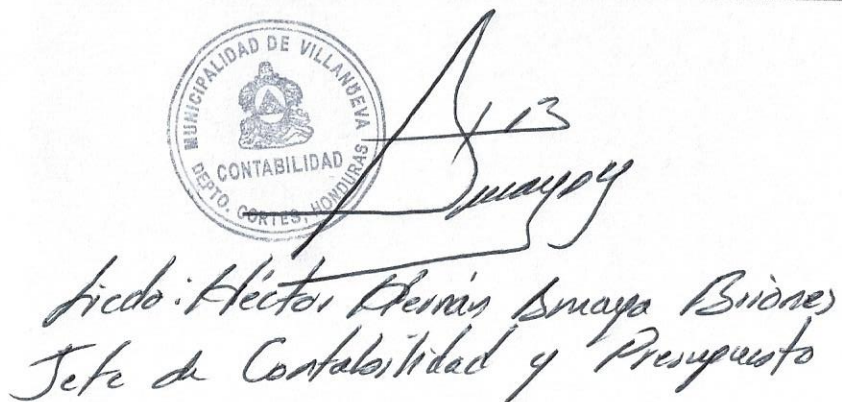 MUNICIPALIDAD DE VILLANUEVA
CONTABILIDAD
DEPTO. CORTES, HONDURAS
Amaya
Licdo: Héctor Hernán Amaya Briones
Jefe de Contabilidad y Presupuesto